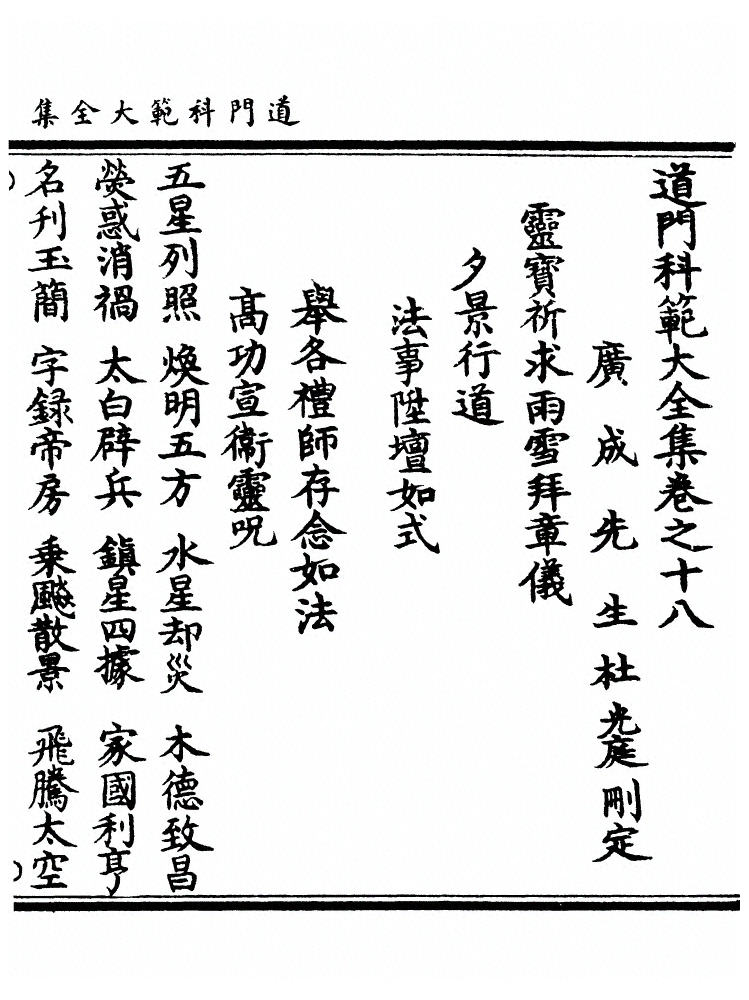 道門科範大全集
道門科範大全集卷之十八
廣成先生杜光庭刪定
靈寶祈求雨雪拜章儀
夕景行道
法事陞壇如式
舉各禮師存念如法
高功宣衞靈呪
五星列照 煥明五方 水星却災 木德致昌
熒惑消禍 太白辟兵 鎮星四據 家國利亨
名刋玉簡 字錄帝房 乗飈散景 飛騰太空